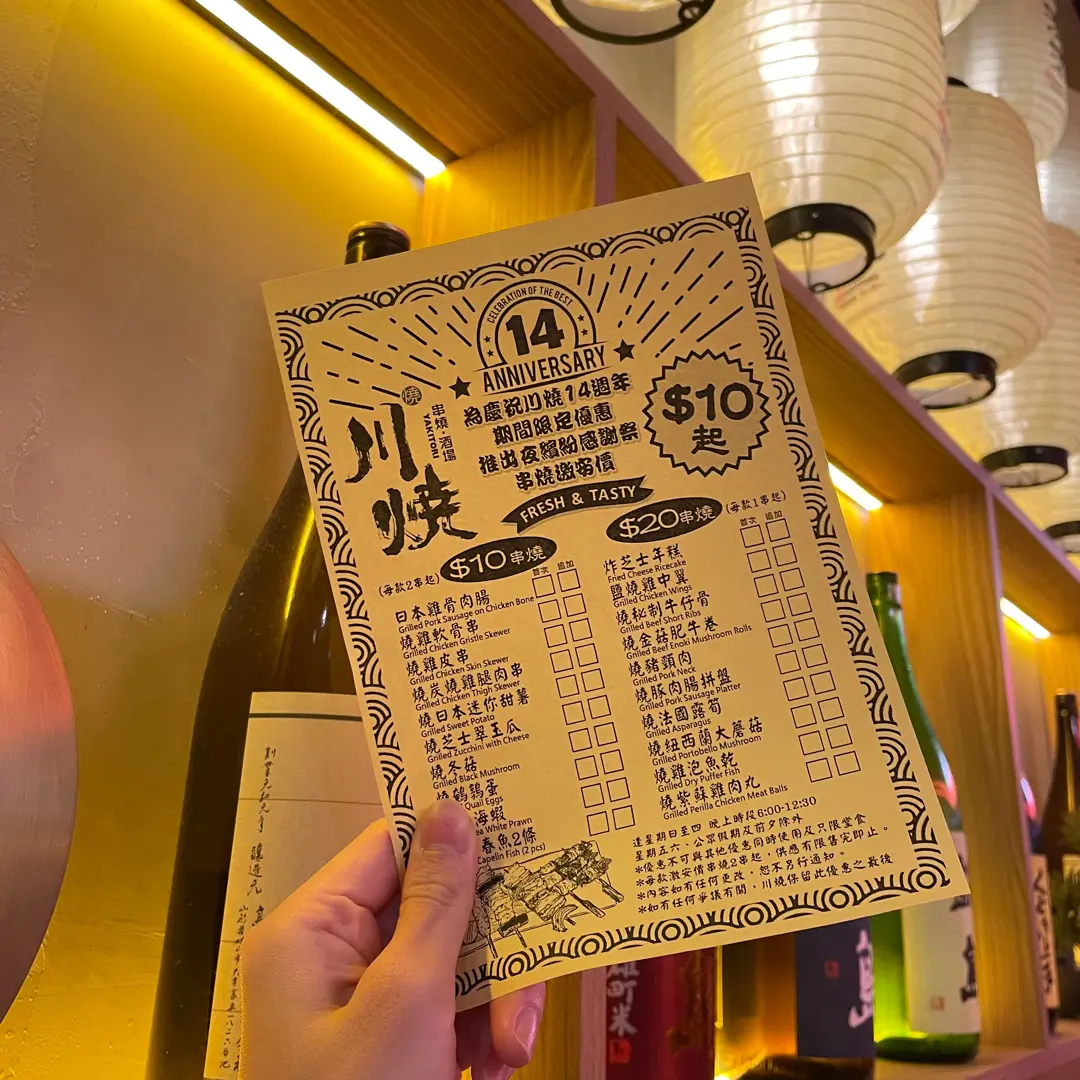 CELEBRATION OF THE BEST
14
ANNIVERSARY
為慶祝川燒14週年
期間限定優惠
推出夜繽紛感謝祭
串燒激安價
$10
起
燒
川燒
串燒・酒場
YAKITORI
FRESH & TASTY
$10串燒
(每款2串起)
首次 追加
日本雞骨肉腸
Grilled Pork Sausage on Chicken Bone
燒雞軟骨串
Grilled Chicken Gristle Skewer
燒雞皮串
Grilled Chicken Skin Skewer
燒炭燒雞腿肉串
Grilled Chicken Thigh Skewer
燒日本迷你甜薯
Grilled Sweet Potato
燒芝士翠玉瓜
Grilled Zucchini with Cheese
燒冬菇
Grilled Black Mushroom
燒鵪鶉蛋
Quail Eggs
海蝦
White Prawn
春魚2條
Capelin Fish (2 pcs)
$20串燒
(每款1串起)
首次 追加
炸芝士年糕
Fried Cheese Ricecake
鹽燒雞中翼
Grilled Chicken Wings
燒秘制牛仔骨
Grilled Beef Short Ribs
燒金菇肥牛卷
Grilled Beef Enoki Mushroom Rolls
燒豬頸肉
Grilled Pork Neck
燒豚肉腸拼盤
Grilled Pork Sausage Platter
燒法國露筍
Grilled Asparagus
燒紐西蘭大蘑菇
Grilled Portobello Mushroom
燒雞泡魚乾
Grilled Dry Puffer Fish
燒紫蘇雞肉丸
Grilled Perilla Chicken Meat Balls
逢星期日至四 晚上時段6:00-12:30
星期五六、公眾假期及前夕除外
*優惠不可與其他優惠同時使用及只限堂食
*每款激安價串燒2串起，供應有限售完即止。
*內容如有任何更改，恕不另行通知。
*如有任何爭議有關，川燒保留此優惠之最後
雄町米